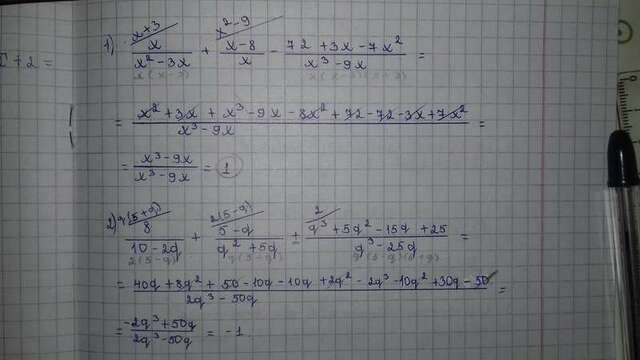 + 2 =
1) x/(x²-3x) + (x-8)/x - (72+3x-7x²)/(x³-9x) =
= (x²+3x+x³-9x-8x²+72-72-3x+7x²)/(x³-9x) =
= (x³-9x)/(x³-9x) = 1
2) 8/(10-2q) + (5-q)/(q²+5q) + (q³+5q²-15q+25)/(q³-25q) =
= (40q+8q²+50-10q-10q+2q²-2q³-10q²+30q-50)/(2q³-50q) =
= (-2q³+50q)/(2q³-50q) = -1